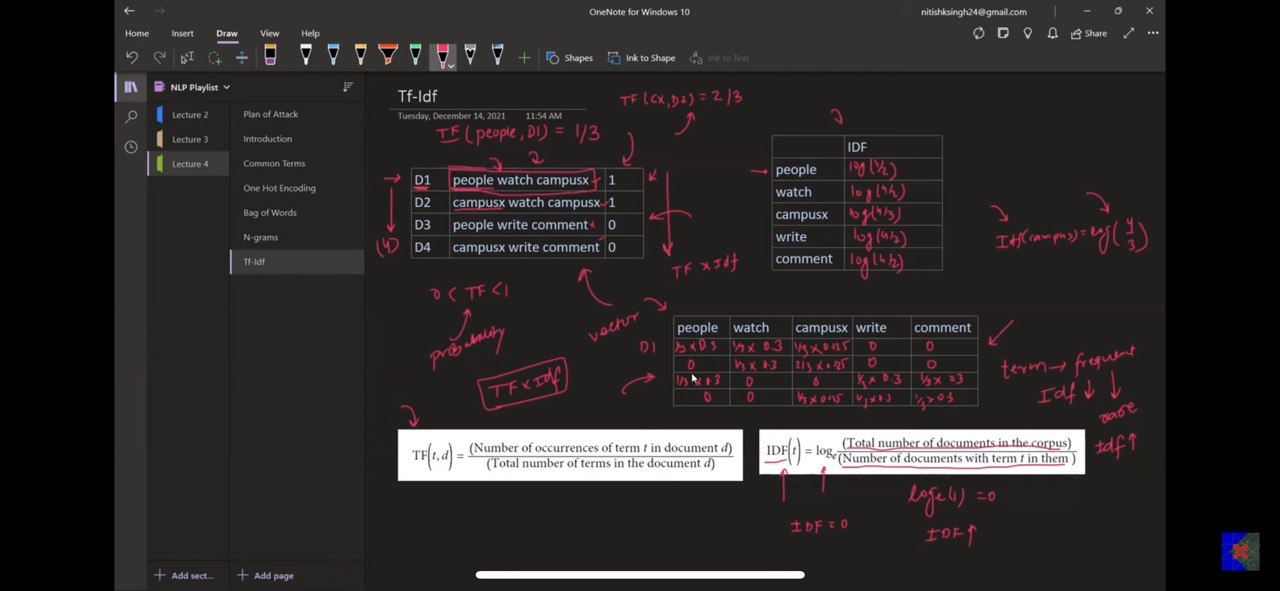 OneNote for Windows 10
nitishksingh24@gmail.com
Home Insert Draw View Help
Share
Shapes
Ink to Shape
Ink to Text
NLP Playlist
Lecture 2
Lecture 3
Lecture 4
Plan of Attack
Introduction
Common Terms
One Hot Encoding
Bag of Words
N-grams
Tf-Idf
Add sect...
Add page
Tf-Idf
Tuesday, December 14, 2021 11:54 AM
TF(CX, D2) = 2/3
TF(people, D1) = 1/3
2
D1 people watch campusx 1
D2 campusx watch campusx 1
D3 people write comment 0
D4 campusx write comment 0
(4)
TF x Idf
0 < TF < 1
probability
vector
TF x Idf
IDF
people log(4/2)
watch log(4/2)
campusx log(4/3)
write log(4/2)
comment log(4/2)
Idf(campus) = log(4/3)
people watch campusx write comment
D1 1/3 x 0.3 1/3 x 0.3 1/3 x 0.125 0 0
0 1/3 x 0.3 2/3 x 0.125 0 0
1/3 x 0.3 0 0 1/3 x 0.3 1/3 x 0.3
0 0 1/3 x 0.125 1/3 x 0.3 1/3 x 0.3
term → frequent
Idf ↓
rare
Idf ↑
TF(t, d) = (Number of occurrences of term t in document d) / (Total number of terms in the document d)
IDF(t) = logₑ (Total number of documents in the corpus) / (Number of documents with term t in them)
loge(1) = 0
IDF = 0
IDF ↑